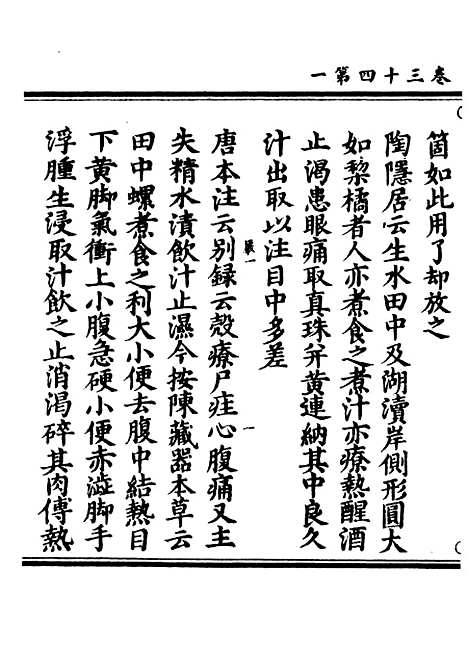 卷三十四第一
箇如此用了却放之
陶隱居云生水田中及湖瀆岸側形圓大
如梨橘者人亦煮食之煮汁亦療熱醒酒
止渴患眼痛取真珠并黃連納其中良久
汁出取以注目中多差
唐本注云別録云殼療尸疰心腹痛又主
失精水漬飲汁止濕今按陳藏器本草云
田中螺煮食之利大小便去腹中結熱目
下黃脚氣衝上小腹急硬小便赤澁脚手
浮腫生浸取汁飲之止消渴碎其肉傅熱